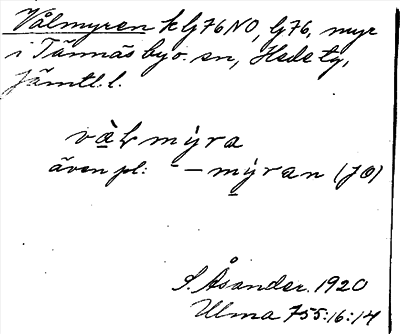 Vålmyren k G76NO, G76, myr
i Tännäs by o. sn, Hede tg,
Jämtl. l.
vàɫmýra
även pl: – mýran (JÖ)
S. Åsander. 1920
Ulma 755:16:14